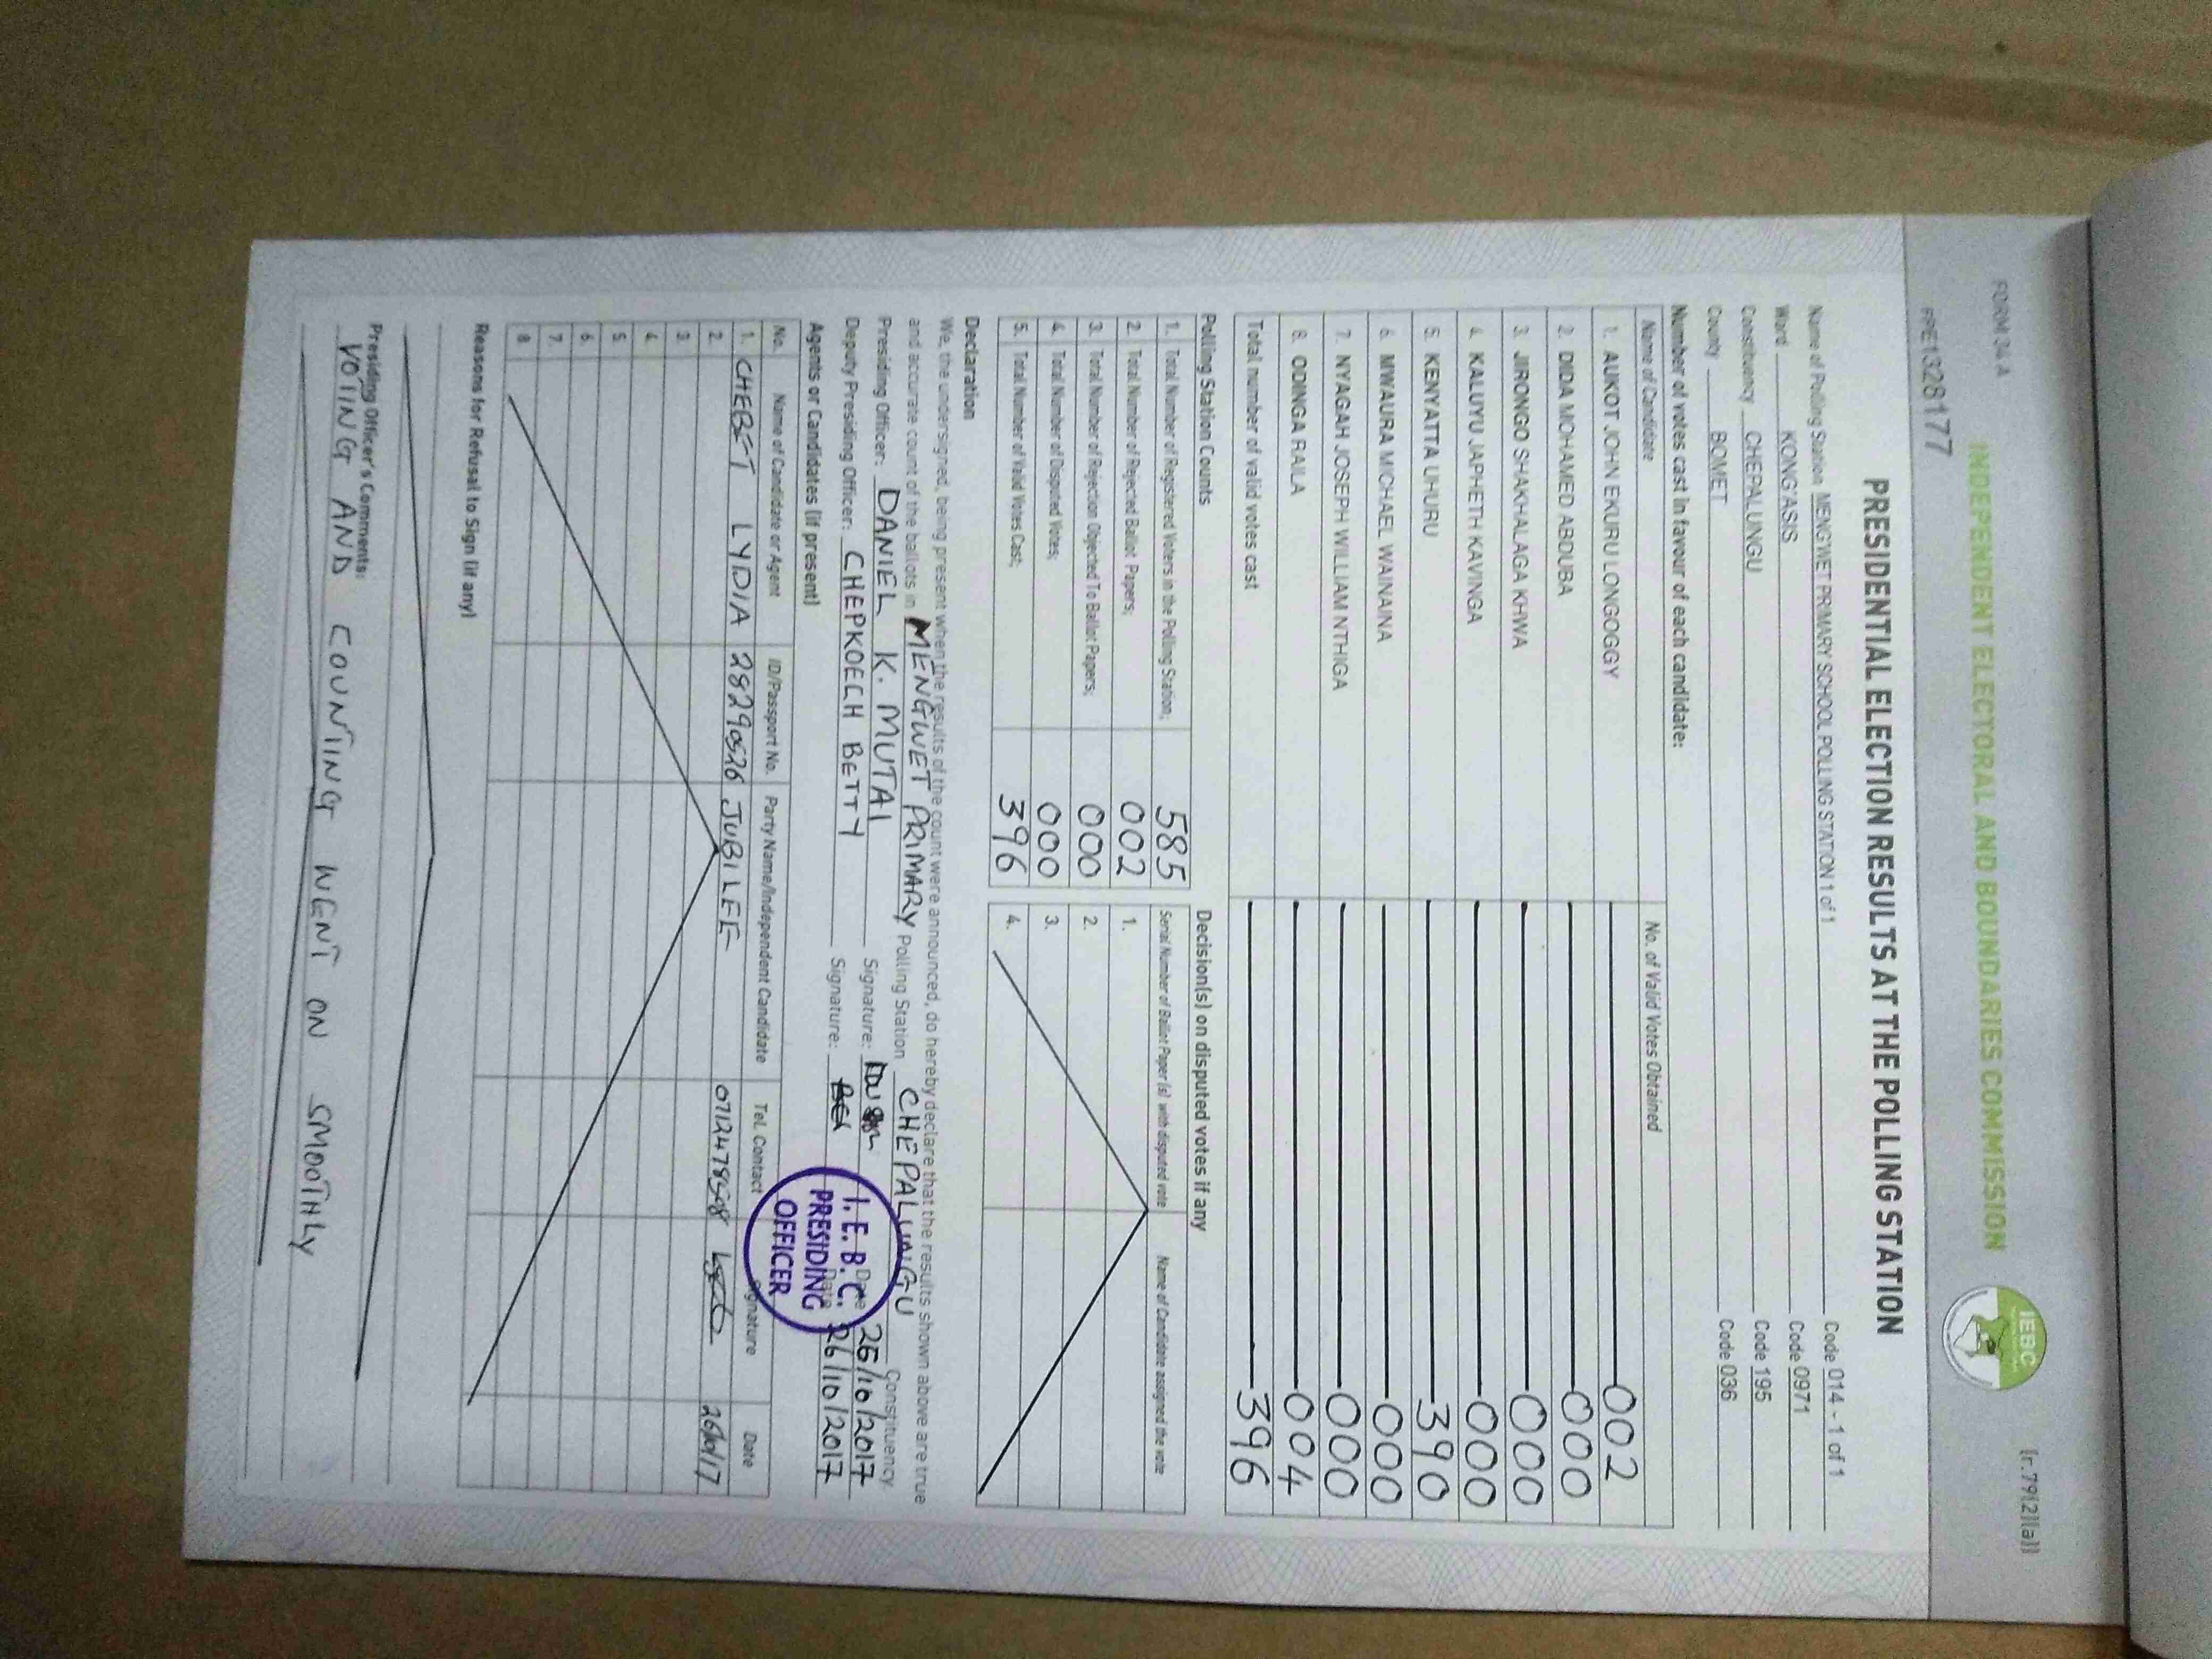 FORM 34 A
[r.79(2)(a)]
INDEPENDENT ELECTORAL AND BOUNDARIES COMMISSION
IEBC
PPE1328177
PRESIDENTIAL ELECTION RESULTS AT THE POLLING STATION
Name of Polling Station MENGWET PRIMARY SCHOOL POLLING STATION 1 of 1 Code 014 - 1 of 1
Ward KONG'ASIS Code 0971
Constituency CHEPALUNGU Code 195
County BOMET Code 036
Number of votes cast in favour of each candidate:
Name of Candidate No. of Valid Votes Obtained
1. AUKOT JOHN EKURU LONGOGGY 002
2. DIDA MOHAMED ABDUBA 000
3. JIRONGO SHAKHALAGA KHWA 000
4. KALUYU JAPHETH KAVINGA 000
5. KENYATTA UHURU 390
6. MWAURA MICHAEL WAINAINA 000
7. NYAGAH JOSEPH WILLIAM NTHIGA 000
8. ODINGA RAILA 004
Total number of valid votes cast 396
Polling Station Counts
1. Total Number of Registered Voters in the Polling Station; 585
2. Total Number of Rejected Ballot Papers; 002
3. Total Number of Rejection Objected To Ballot Papers; 000
4. Total Number of Disputed Votes; 000
5. Total Number of Valid Votes Cast; 396
Decision(s) on disputed votes if any
Serial Number of Ballot Paper (s) with disputed vote Name of Candidate assigned the vote
1.
2.
3.
4.
Declaration
We, the undersigned, being present when the results of the count were announced, do hereby declare that the results shown above are true
and accurate count of the ballots in MENGWET PRIMARY Polling Station CHEPALUNGU Constituency
Presiding Officer: DANIEL K. MUTAI Signature: Date 26/10/2017
Deputy Presiding Officer: CHEPKOECH BETTY Signature: Date 26/10/2017
I. E. B. C.
PRESIDING
OFFICER
Agents or Candidates (if present)
No. Name of Candidate or Agent ID/Passport No. Party Name/Independent Candidate Tel. Contact Signature Date
1. CHEBET LYDIA 28290526 JUBILEE 0712478508 26/10/17
2.
3.
4.
5.
6.
7.
8
Reasons for Refusal to Sign (if any)
Presiding Officer's Comments:
VOTING AND COUNTING WENT ON SMOOTHLY